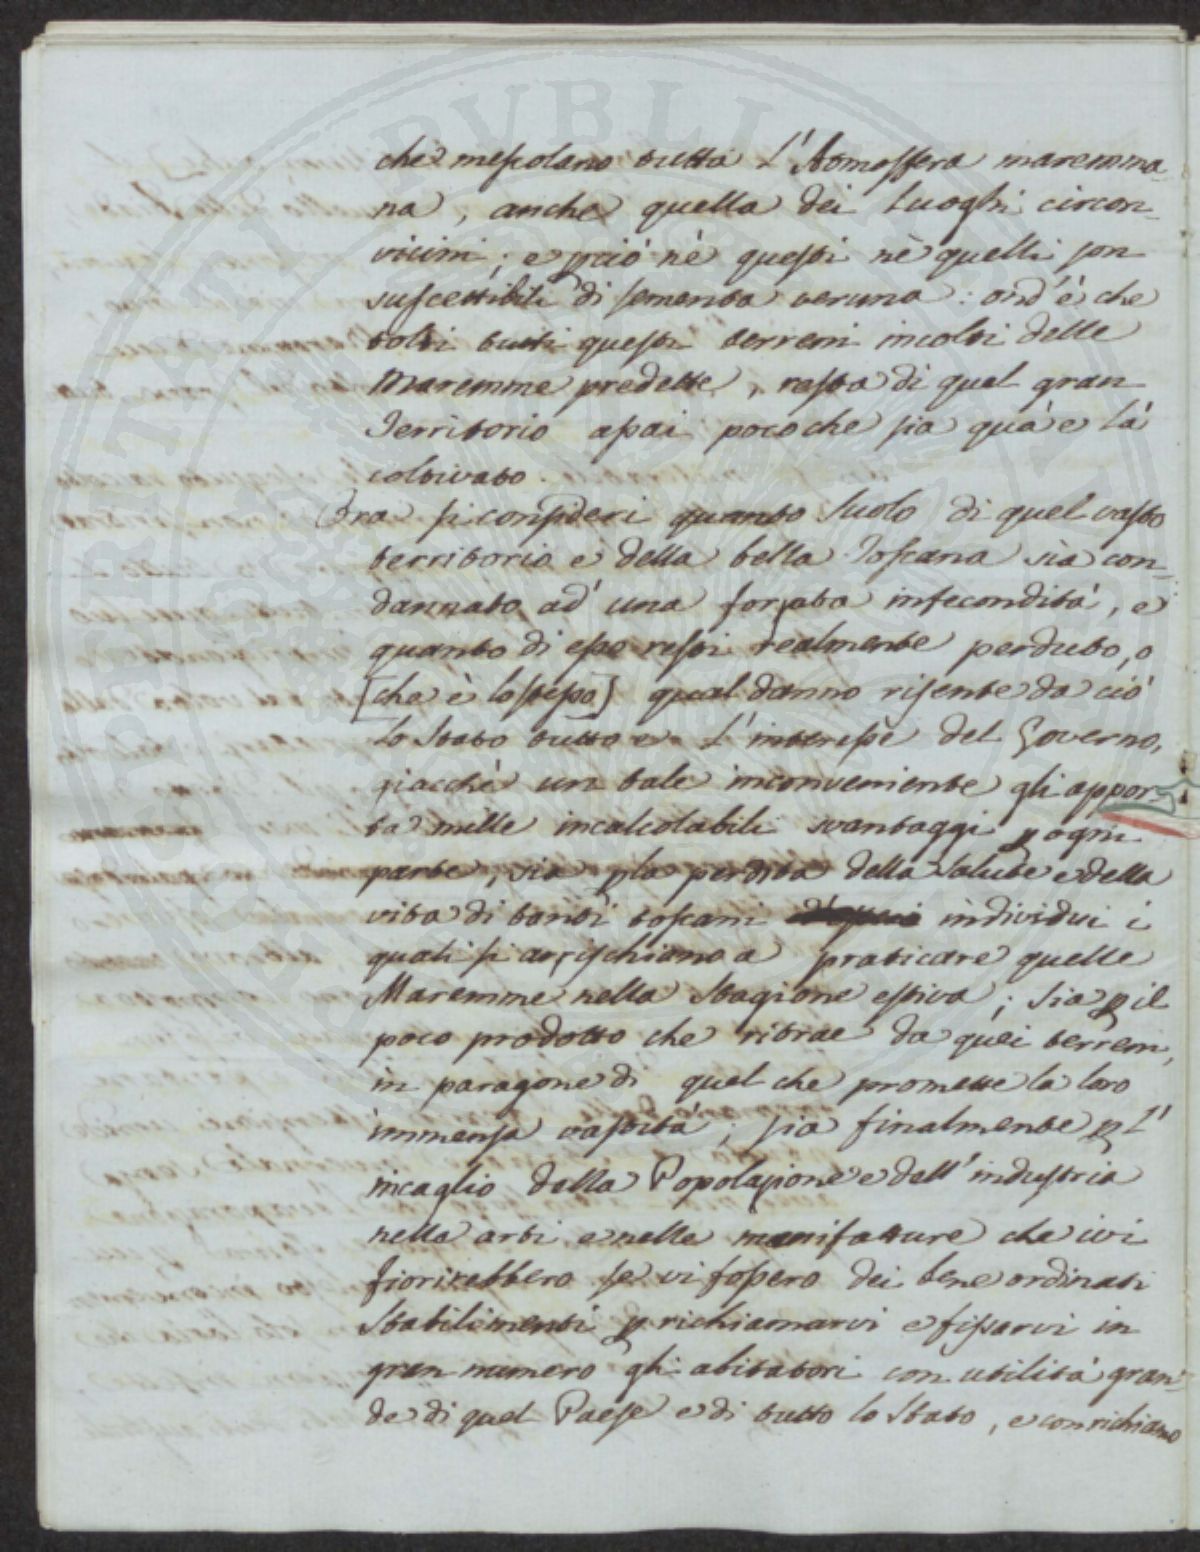 che mescolano tutta l'Atmosfera maremma-
na, anche quella dei Luoghi circon-
vicini; e pciò nè questi nè quelli son
suscettibili di sementa veruna: ond'è che
tolti tutti questi terreni incolti delle
Maremme predette, resta di quel gran
Territorio assai poco che sia quà e là
coltivato.
Ora si consideri quanto Suolo di quel vasto
territorio e della bella Toscana sia con-
dannato ad una forzata infecondità, e
quanto di esso resti realmente perduto, o
[che è lo stesso] qual danno risente da ciò
Lo Stato tutto e l'interesse del Governo,
giacchè un tale inconveniente gli appor-
ta mille incalcolabili svantaggi p ogni
parte, sia p la perdita della Salute e della
vita di tanti toscani individui i
quali si arrischiano a praticare quelle
Maremme nella Stagione estiva; sia p il
poco prodotto che ritrae da quei terreni,
in paragone di quel che promette la loro
immensa vastità; sia finalmente p l'
incaglio della Popolazione e dell'industria
nella arti e nelle manifatture che ivi
fiorirebbero se vi fossero dei bene ordinati
Stabilimenti p richiamarvi e fissarvi in
gran numero gli abitatori con utilità gran-
de di quel Paese e di tutto lo Stato, e con richiamo